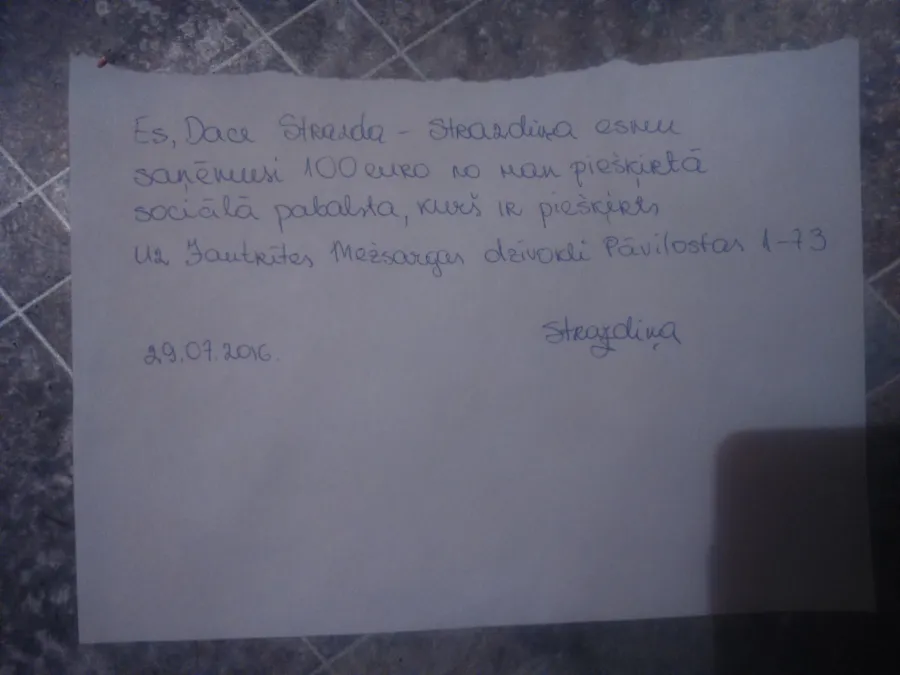 Es, Dace Strazda - Strazdiņa esmu
saņēmusi 100 euro no man piešķirtā
sociālā pabalsta, kurš ir piešķirts
uz Jautrītes Mežsargas dzīvokli Pāvilostas 1-73
Strazdiņa
29.07.2016.